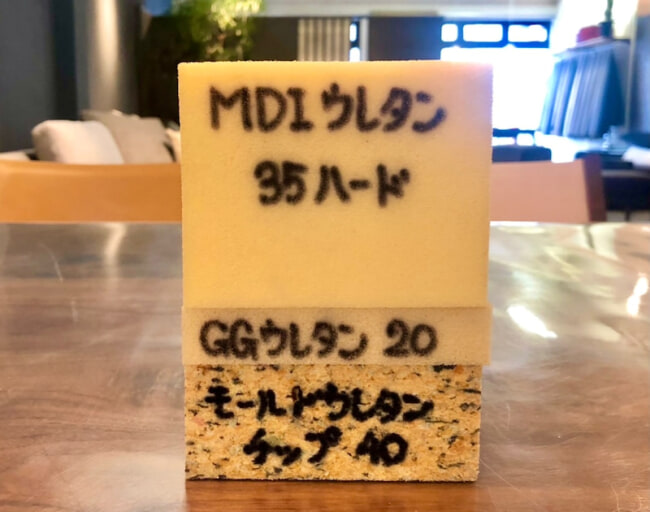 MDIウレタン
35ハード
GGウレタン 20
モールドウレタン
チップ 40